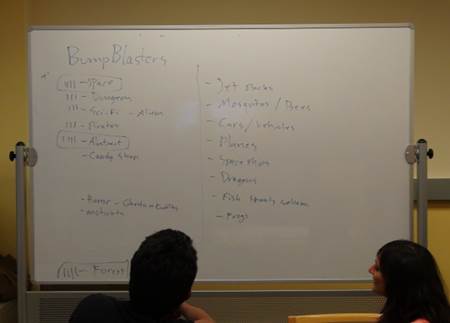 BumpBlasters
|||| - Space
||| - Dungeons
||| - Sci-Fi - Aliens
||| - Pirates
|||| - Abstract
- Candy Shop
- Horror -
|||| - Forest
- Jet Packs
- Mosquitos / Bees
- Cars / Vehicles
- Planes
- Space Ships
- Dragons
- Fish
- Frogs